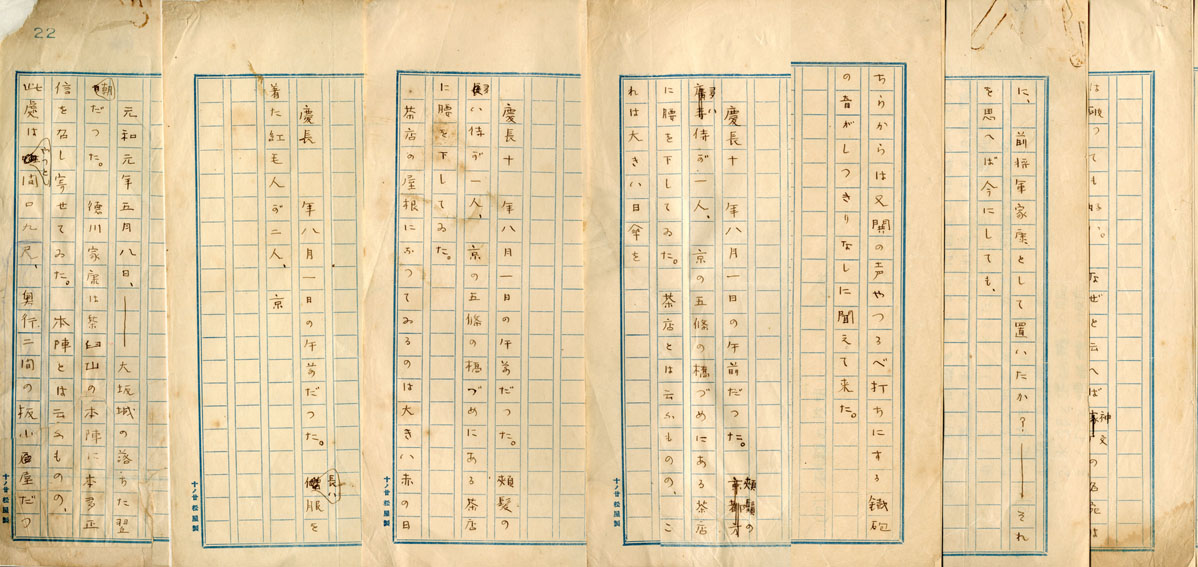 は破つても好い。なぜと云へば神文の名宛は
に、前将軍家康として置いたか?――それ
を思へば今にしても、
ちらからは又鬨の声やつるべ打ちにする鐵砲
の音がしつきりなしに聞えて来た。
慶長十　年八月一日の午前だつた。頬髯の
多い侍が一人、京の五條の橋づめにある茶店
に腰を下してゐた。茶店とは云ふものの、こ
れは大きい日傘を
十ノ廿 松屋製
慶長十　年八月一日の午前だつた。頬髪の
長い侍が一人、京の五條の橋づめにある茶店
に腰を下してゐた。
茶店の屋根になつてゐるのは大きい赤の日
十ノ廿 松屋製
慶長　年八月一日の午前だつた。長い服を
着た紅毛人が二人、京
十ノ廿 松屋製
22
元和元年五月八日、――大坂城の落ちた翌
朝だつた。徳川家康は茶臼山の本陣に本多正
信を召し寄せてゐた。本陣とは云ふものの、
此處はやつと間口九尺、奥行二間の板小屋だつ
十ノ廿 松屋製